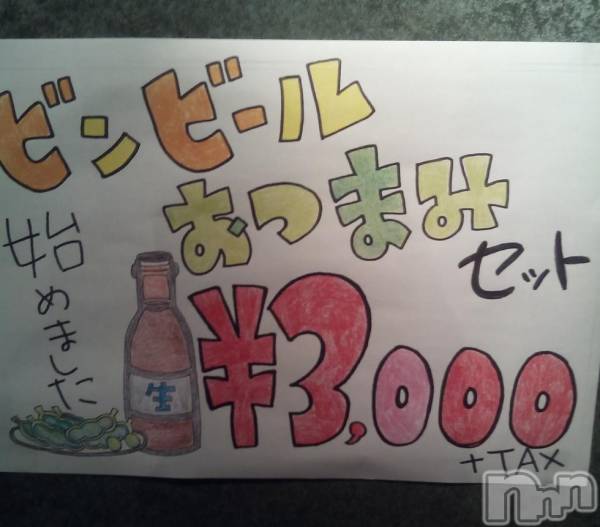 ビンビール
おつまみ
セット
始めました
生
¥3,000
+TAX
nnn